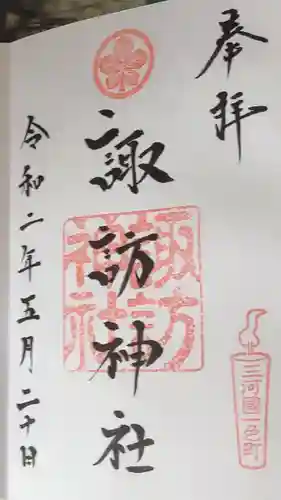 奉拝
三河國一色町
諏訪神社
諏訪神社
令和二年五月二十日